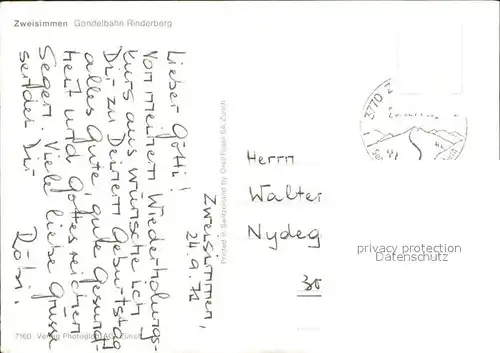 Zweisimmen Gondelbahn Rinderberg
Zweisimmen,
24.9.71
Lieber Götti!
Von meinem Wiederholungs-
kurs aus wünsche ich
Dir zu Deinem Geburtstag
alles Gute, gute Gesund-
heit und Gottes reichen
Segen. Viele liebe Grüsse
sendet Dir
Röbi.
Printed in Switzerland by Orell Füssli SA Zürich
7160 Verlag Photoglob AG, Zürich
3770
Herrn
Walter
Nydeg
30
privacy protection
Datenschutz